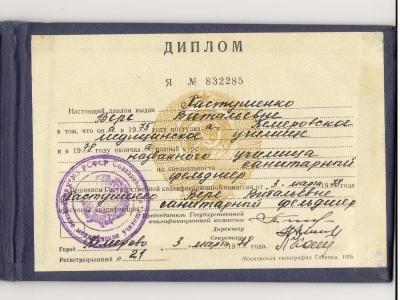 ДИПЛОМ
Я № 832285
Настоящий диплом выдан Пастушенко
Вере Витальевне
в том, что она в 1975 году поступила в Кемеровское
медицинское училище
и в 1978 окончила полный курс
названного училища
по специальности санитарный
фельдшер
Решением Государственной квалификационной комиссии от 3 марта 1978
Пастушенко Вере Витальевне
присвоена квалификация санитарный фельдшер
Председатель Государственной
квалификационной комиссии
Директор
Секретарь
Город Кемерово 3 марта 1978 года.
Регистрационный № 21
Московская типография Гознака. 1976.